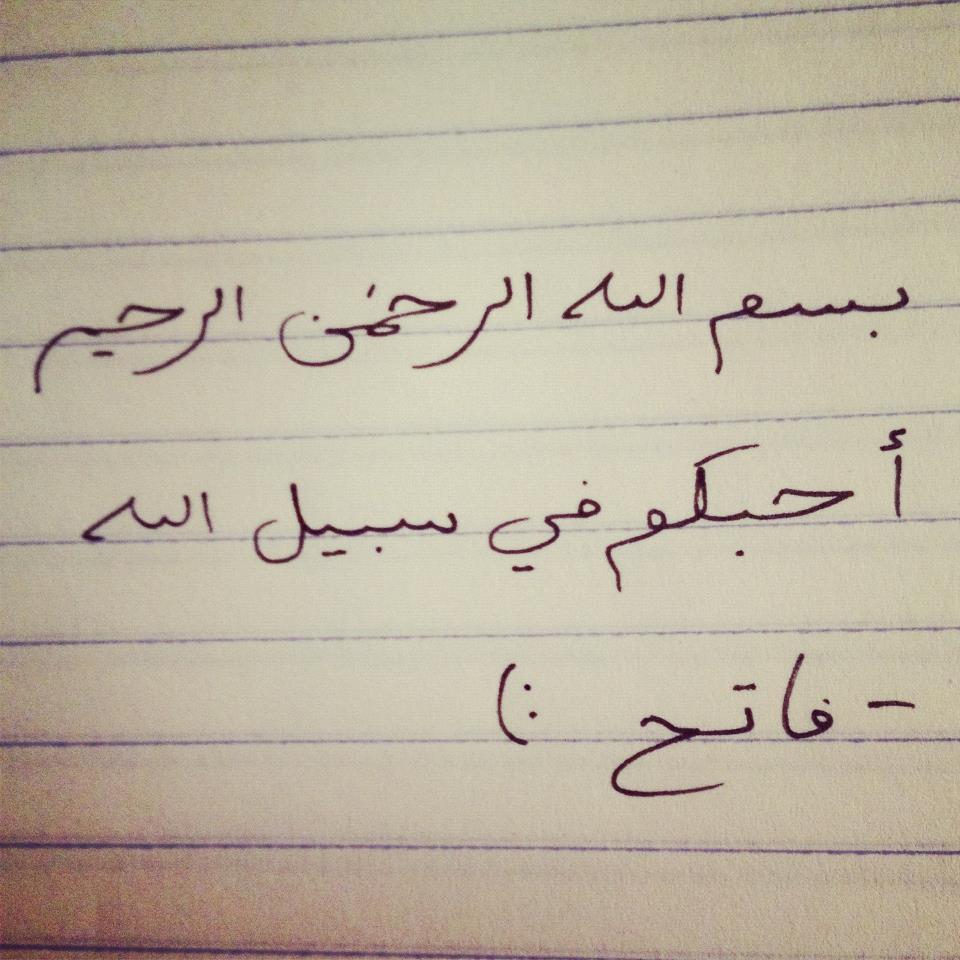 بسم الله الرحمن الرحيم
أحبكم في سبيل الله
- فاتح :)